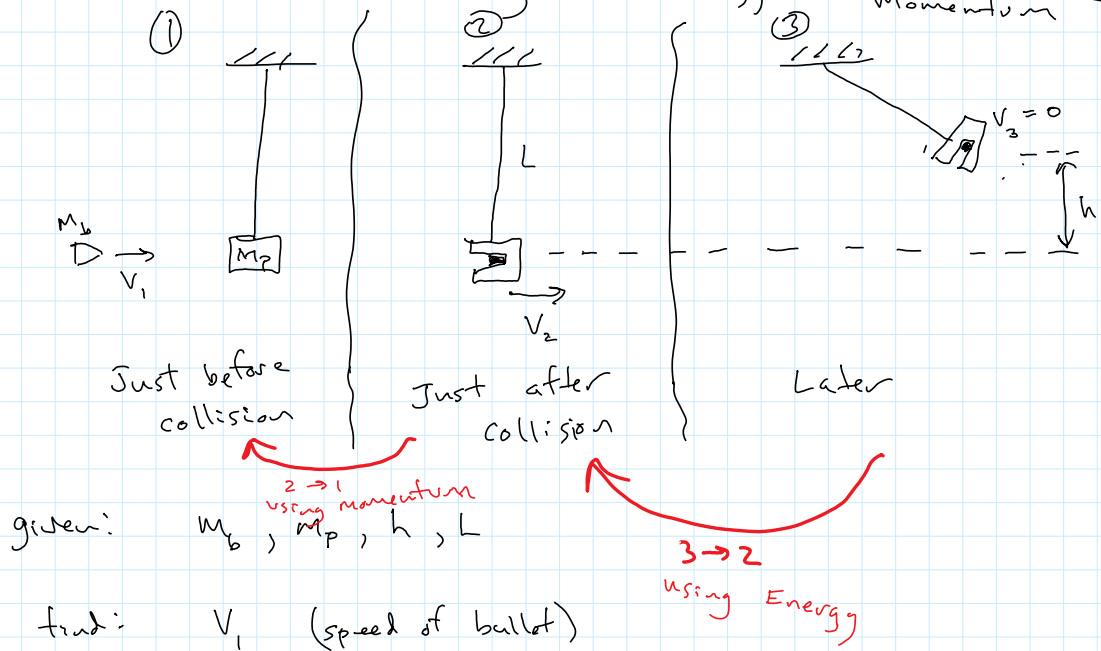 Momentum
①
②
③
V₃ = 0
L
h
M_b
V₁
M_P
V₂
Just before
collision
Just after
collision
Later
2 → 1
using momentum
3 → 2
using Energy
given: m_b, m_p, h, L
find: V₁ (speed of bullet)